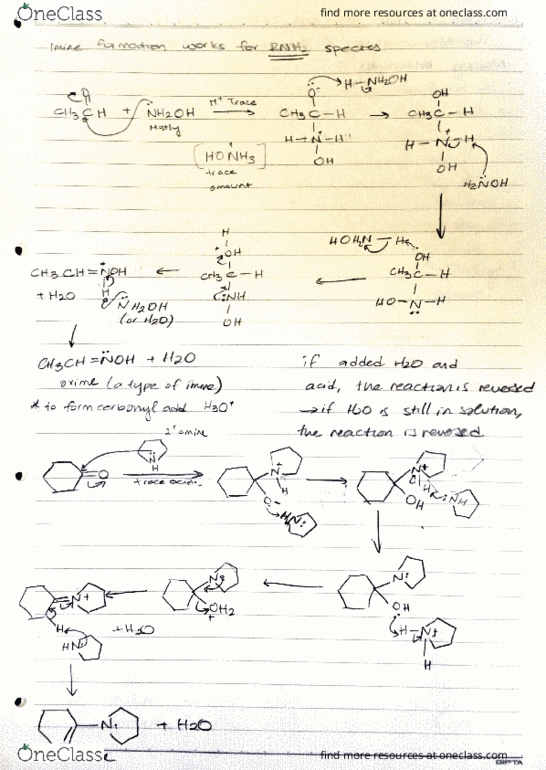 OneClass
find more resources at oneclass.com
Imine formation works for RNH2 species
CH3CH + NH2OH
H+ Trace
Mostly
[HONH3]
trace
amount
O-
H-NH2OH
CH3C-H
H-N+-H
OH
OH
CH3C-H
H-N+-H
OH
H2NOH
HOH2N-H
OH
CH3C-H
HO-N-H
H
OH
CH3C-H
NH
OH
CH3CH=NOH
+ H2O
H
NH2OH
(or H2O)
CH3CH=NOH + H2O
oxime (a type of imine)
* to form carbonyl add H3O+
if added H2O and
acid, the reaction is reversed
→ if H2O is still in solution,
the reaction is reversed
2° amine
N
H
O
trace acid
N+
H
O-
HN
N+
H
OH
NH
N
OH
H-N+
H
N
OH2
+
N+
H
HN
+ H2O
N + H2O
OneClass
find more resources at oneclass.com
GIPTA